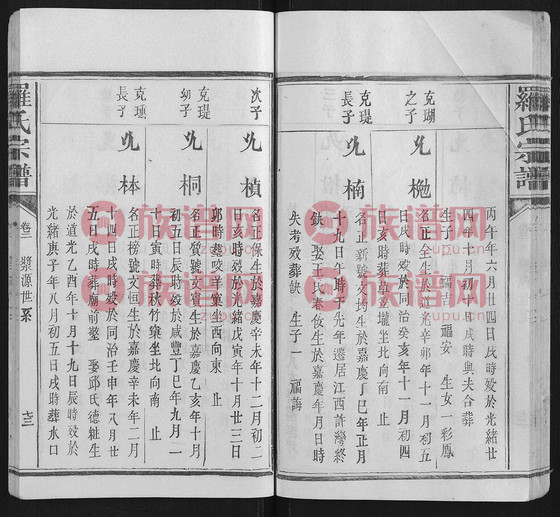 羅氏宗譜
丙午年六月廿四日戌時歿於光緒廿
四年十月初十日戌時與夫合葬
生子二 福安 生女一彩鳳
克瑚之子
兆
名正全生於道光辛卯年十一月初五
日戌時歿於同治癸亥年十一月初四
日亥時葬 壠坐北向南 止
克瑅長子
兆楠
名正新號文均生於嘉慶丁巳年正月
十九日午時于先年遷居江西許灣終
缺 娶王氏素攸生於嘉慶年月日時
失考歿葬缺 生子一 福海
次子
兆楨
名正保生於嘉慶辛未年十二月初二
日亥時歿於光緒戊寅年十月廿三日
卯時葬 羊窠坐西向東 止
克瑅幼子
兆桐
名正賀號文賓生於嘉慶乙亥年十月
初五日辰時歿於咸豐丁巳年九月一
日寅時葬秋竹窠坐北向南 止
長子
兆林
名正榜號文恒生於嘉慶辛未年二月
四日戌時歿於同治壬申年八月廿
五日戌時葬廟前墪 娶邱氏德姓生
於道光乙酉年十月十九日辰時歿於
光緒庚子年八月初五日戌時葬水口
羅氏宗譜
卷二
漿源世系
族谱网